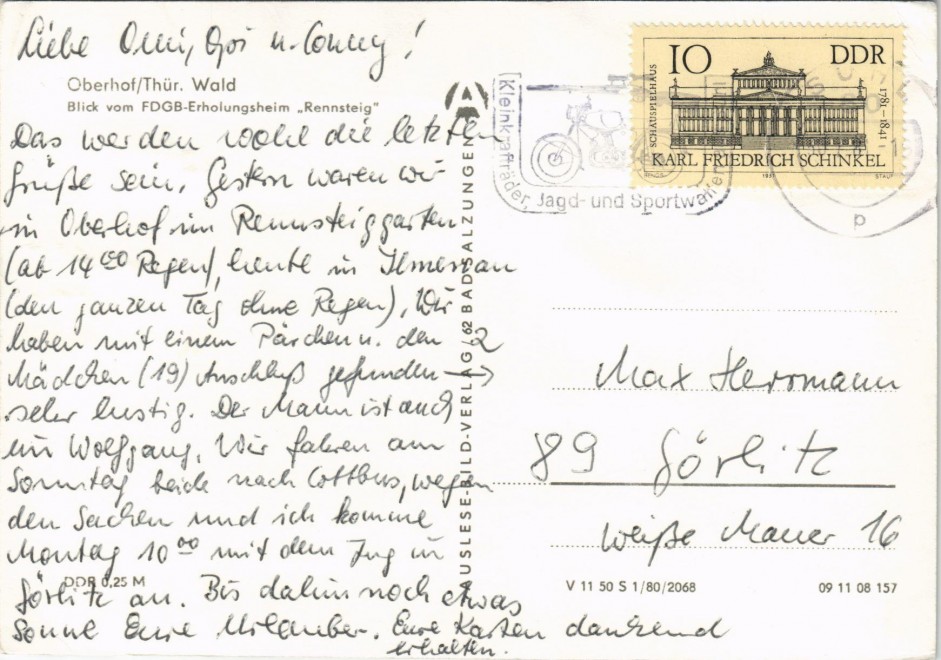 Liebe Omi, Opi u. Conny!
Oberhof/Thür. Wald
Blick vom FDGB-Erholungsheim „Rennsteig"
Das werden wohl die letzten
Grüße sein. Gestern waren wir
in Oberhof im Rennsteiggarten
(ab 14⁰⁰ Regen), heute in Ilmenau
(den ganzen Tag ohne Regen). Wir
haben mit einem Pärchen u. den 2
Mädchen (19) Anschluß gefunden →
sehr lustig. Der Mann ist auch
ein Wolfgang. Wir fahren am
Sonntag beide nach Cottbus, wegen
den Sachen und ich komme
Montag 10⁰⁰ mit dem Zug in
Görlitz an. Bis dahin noch etwas
Sonne Eure Urlauber. Eure Karten dankend
erhalten.
DDR 0,25 M
AUSLESE-BILD-VERLAG / 62 BAD SALZUNGEN
Kleinkrafträder, Jagd- und Sportwaffen
10 DDR
SCHAUSPIELHAUS
1781–1841
KARL FRIEDRICH SCHINKEL
1981
p
Max Herrmann
89 Görlitz
Weiße Mauer 16
V 11 50 S 1/80/2068
09 11 08 157